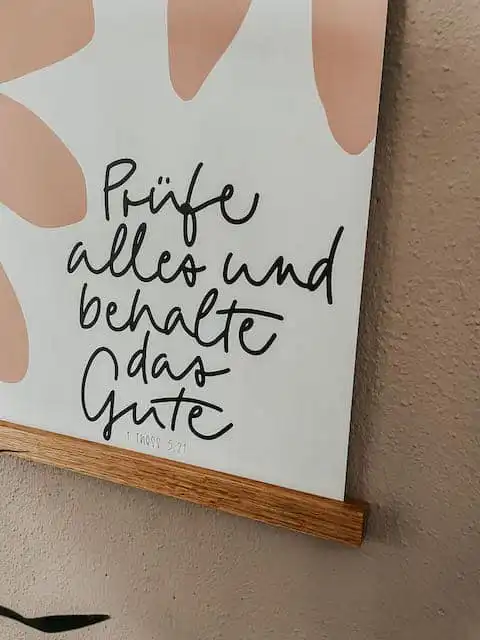 Prüfe
alles und
behalte
das
Gute
1 THESS 5,21